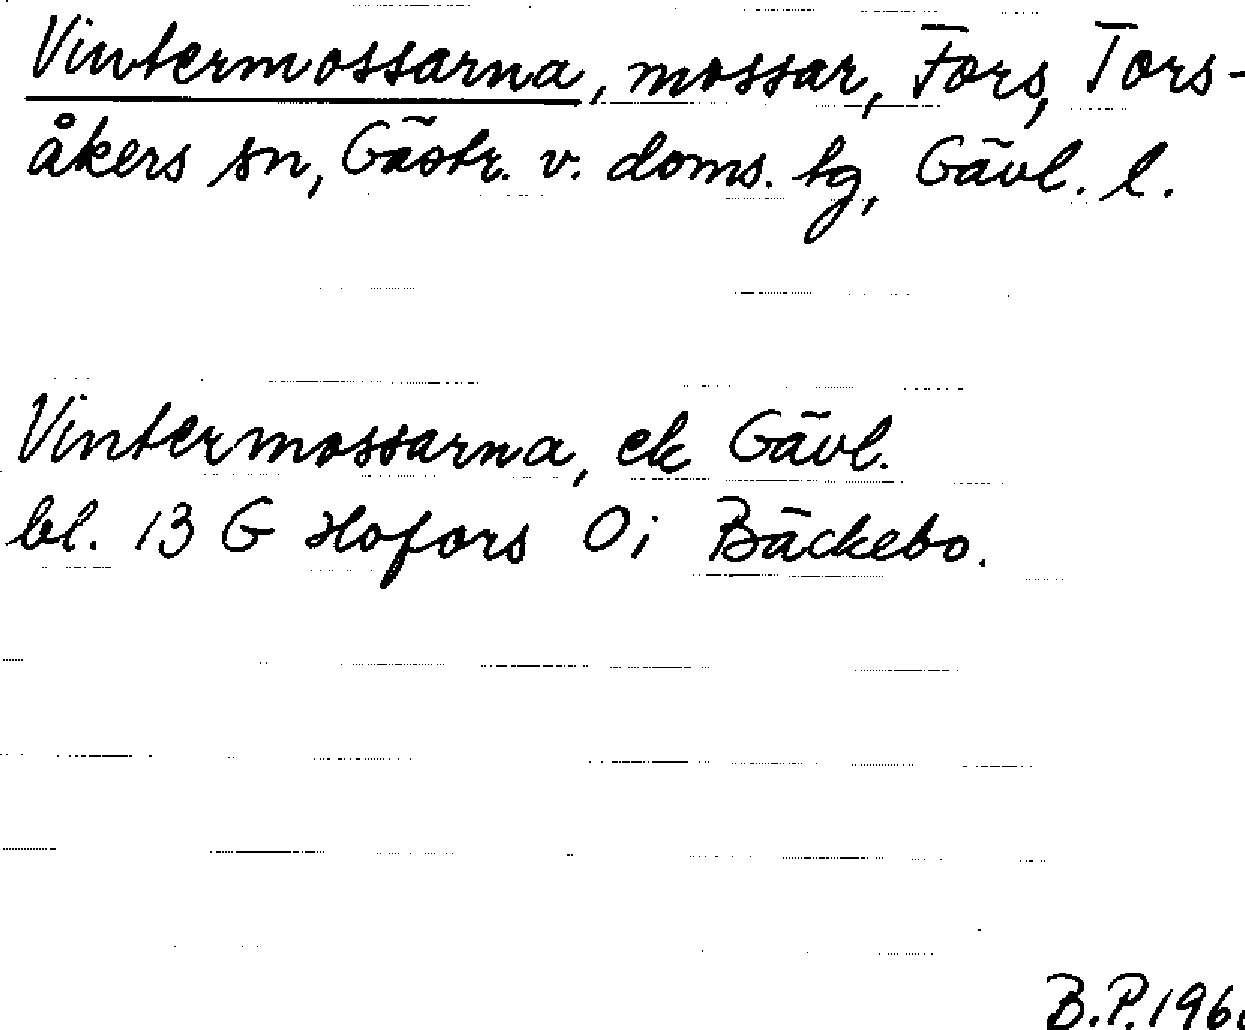 Vintermossarna, mossar, Fors, Tors-
åkers sn, Gästr. v. doms. tg, Gävl. l.
Vintermossarna, ek Gävl.
bl. 13 G Hofors Oi Bäckebo.
B.P.